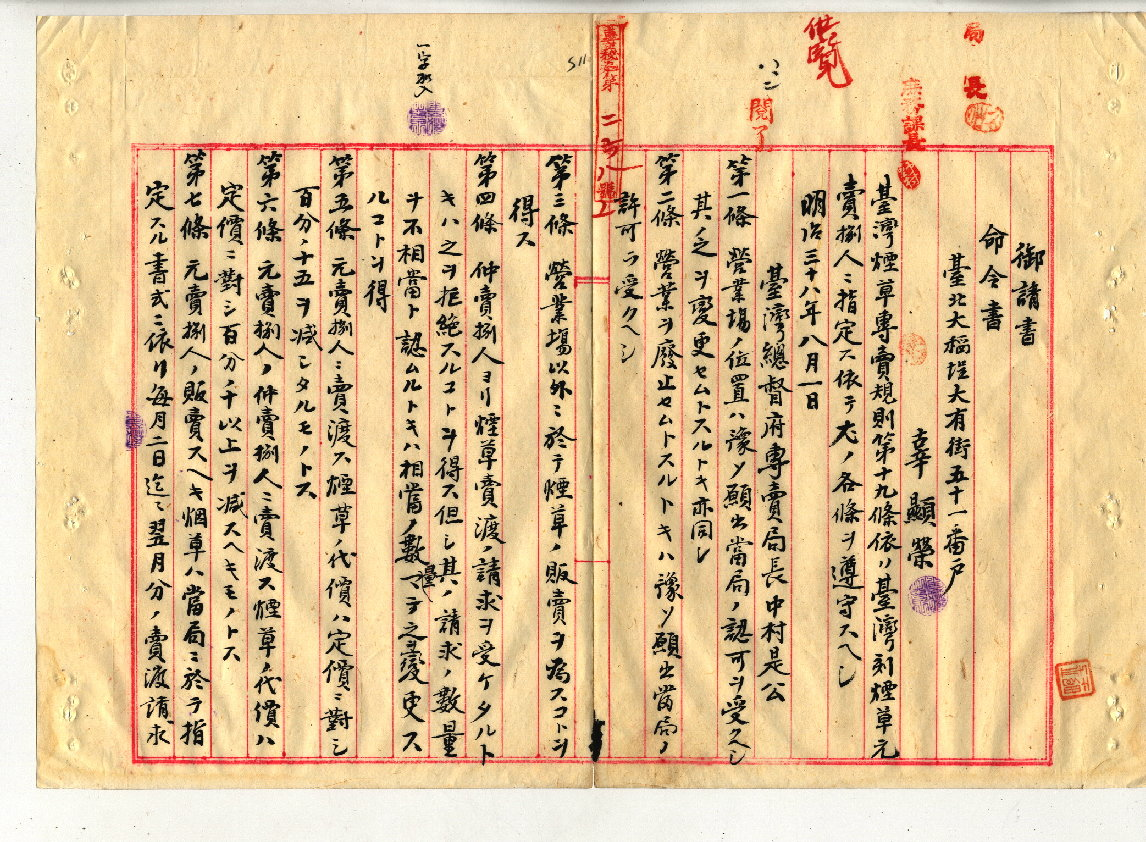 局長
庶務課長
供覽
八、二
閱了
專秘定第二百八號ノ
一字加入
御請書
命令書
臺北大稻埕大有街五十一番戶
辜顯榮
臺灣煙草專賣規則第十九條依リ臺灣刻煙草元
賣捌人ニ指定ス依テ左ノ各條ヲ遵守スヘシ
明治三十八年八月一日
臺灣總督府專賣局長中村是公
第一條 營業場ノ位置ハ豫メ願出當局ノ認可ヲ受クヘシ
其ノ之ヲ變更セムトスルトキ亦同シ
第二條 營業ヲ廢止セムトスルトキハ豫メ願出當局ノ
許可ヲ受クヘシ
第三條 營業場以外ニ於テ煙草ノ販賣ヲ為スコトヲ
得ス
第四條 仲賣捌人ヨリ煙草賣渡ノ請求ヲ受ケタルト
キハ之ヲ拒絕スルコトヲ得ス但シ其ノ請求ノ數量
ヲ不相當ト認ムルトキハ相當ノ數量マテ之ヲ變更ス
ルコトヲ得
第五條 元賣捌人ニ賣渡ス煙草ノ代價ハ定價ニ對シ
百分ノ十五ヲ減シタルモノトス
第六條 元賣捌人ノ仲賣捌人ニ賣渡ス煙草ノ代價ハ
定價ニ對シ百分ノ十以上ヲ減スヘキモノトス
第七條 元賣捌人ノ販賣スヘキ烟草ハ當局ニ於テ指
定スル書式ニ依リ每月二日迄ニ翌月分ノ賣渡請求